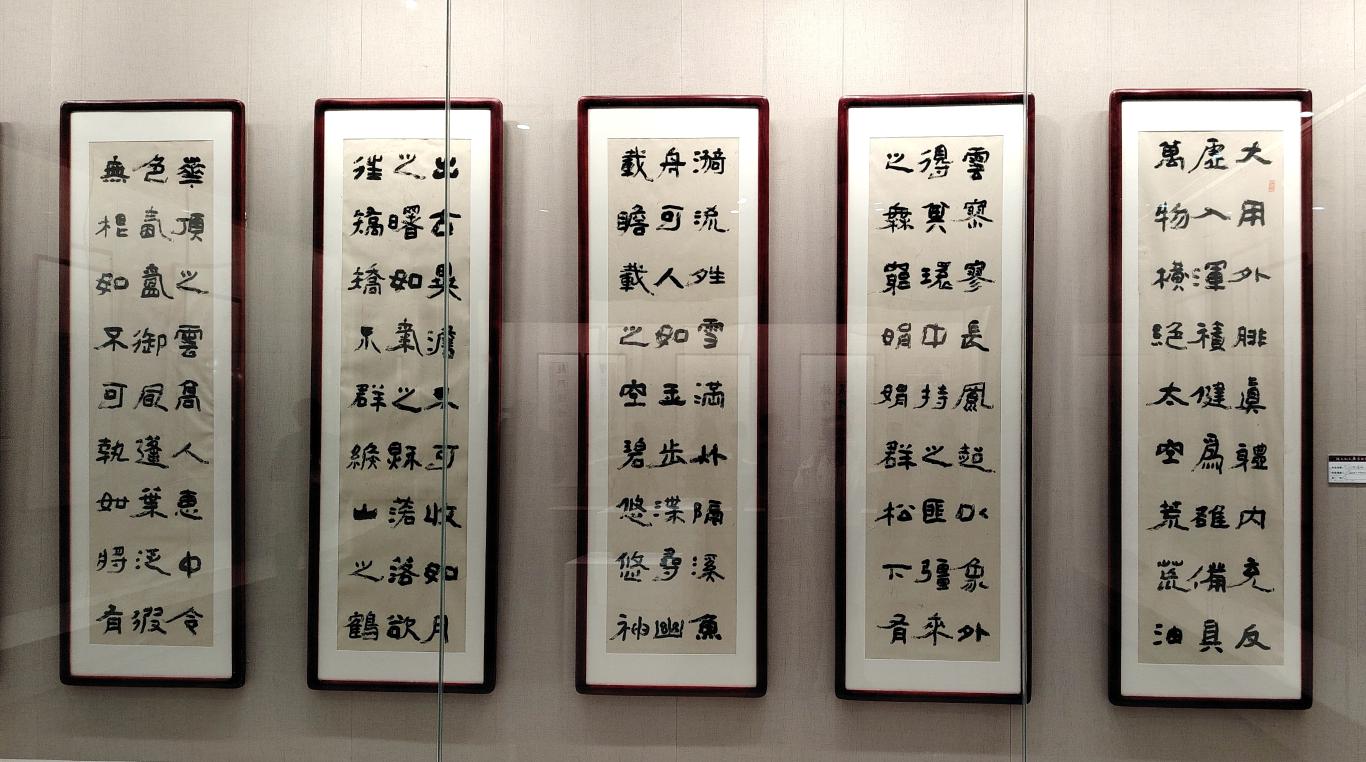 大用外腓眞體内充反
虛入渾積健爲雄備具
萬物橫絕太空荒荒油
雲寥寥長風超以象外
得其環中持之匪彊來
之無窮娟娟群松下有
漪流夝雪滿竹隔溪魚
舟可人如玉步屧尋幽
載瞻載之空碧悠悠神
出古異澹不可收如月
之曙如氣之秋落落欲
往矯矯不群緱山之鶴
華頂之雲高人惠中令
色氤氳御風蓬葉泛
無如不可執如將有